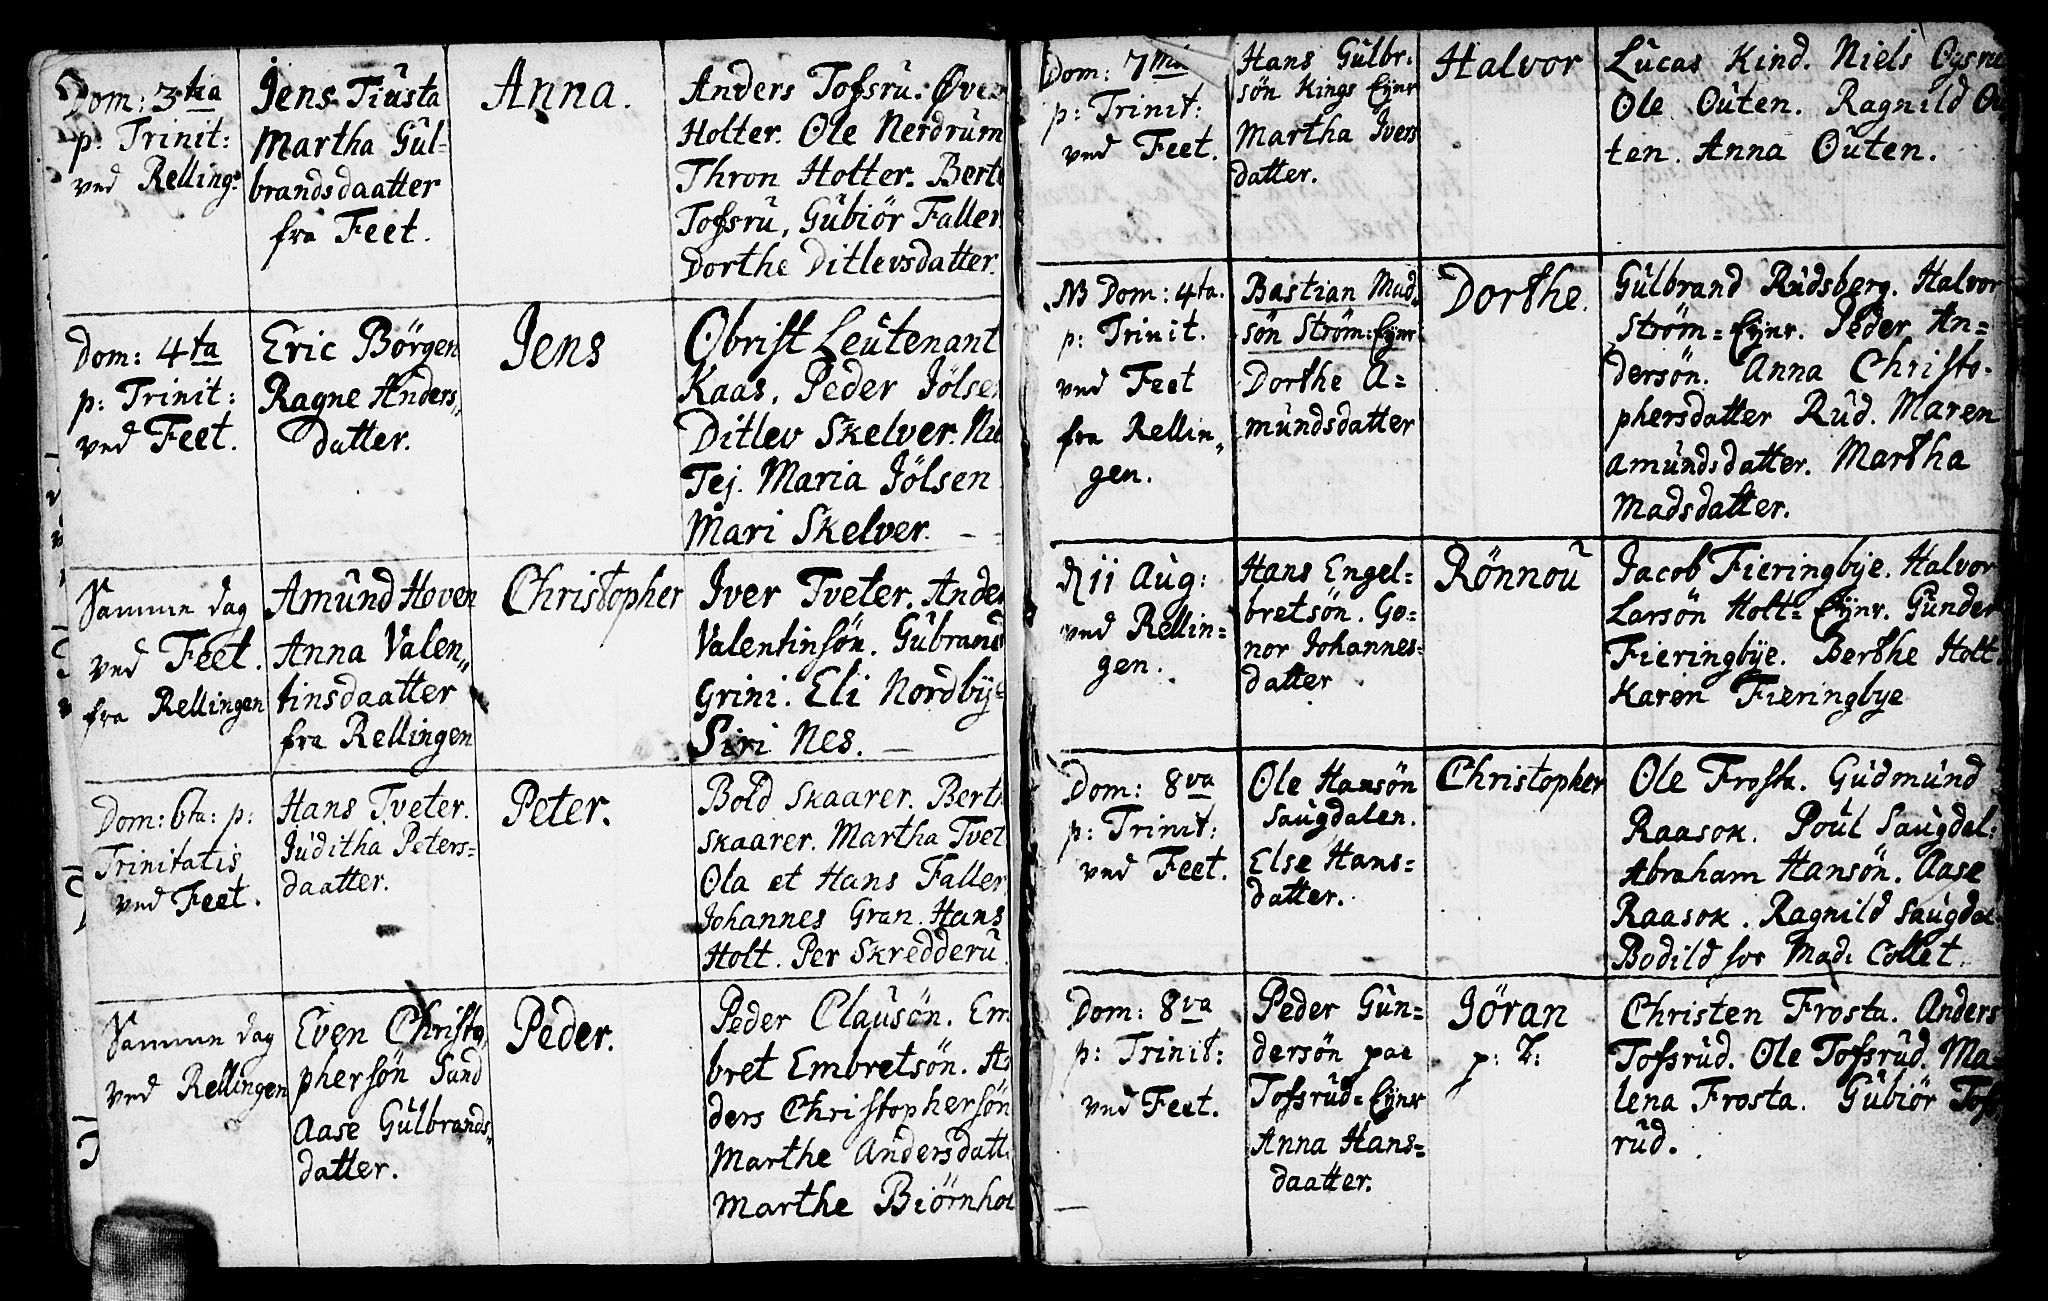 Dom: 3tia
p: Trinit:
ved Relling:
Jens Tiusta
Martha Gul-
brandsdaatter
fra Feet.
Anna.
Anders Tofsrü. Øver
Holter. Ole Nerdrüm
Thron Holter. Berte
Tofsrü, Gübiör Faller
Dorthe Ditlevsdatter.
Dom: 4ta
p: Trinit:
ved Feet.
Eric Börgen
Ragne Anders„
datter.
Jens
Obrist Leütenant
Kaas. Peder Jölsen
Ditlev Skelver.
Tej. Maria Jölsen
Mari Skelver.
Samme dag
ved Feet.
fra Rellingen
Amünd Hoven
Anna Valen„
tinsdaatter
fra Rellingen
Christopher
Iver Tveter. Ander
Valentinsön. Gübrand
Grini. Eli Nordbÿe
Siri Nes.
Dom: 6ta: p:
Trinitatis
ved Feet.
Hans Tveter.
Jüditha Peters=
daatter.
Peter.
Bold Skaarer. Berth
Skaarer. Martha Tvet
Ola et Hans Faller
Johannes Gran. Hans
Holt. Per Skredderü.
Samme dag
ved Rellingen
Even Christo
phersön Sünd
Aase Gülbrands„
datter.
Peder.
Peder Claüsön. Em
bret Embretsön. An
ders Christophersön
Marthe Andersdatt
Marthe Biörnhol
Dom: 7ma
p: Trinit:
ved Feet.
Hans Gülbr=
sön Kings Eÿnr
Martha Ivers
datter.
Halvor
Lücas Kind. Niels
Ole Oüten. Ragnild Oü
ten. Anna Oüten.
NB Dom: 4ta.
p: Trinit.
ved Feet
fra Rellin„
gen.
Bastian Mad
sön Ström=Eÿnr
Dorthe A=
mündsdatter
Dorthe.
Gülbrand Rüdsberg. Halvor
Ström=Eÿnr. Peder An=
dersön. Anna Christo-
phersdatter Rüd. Maren
amündsdatter. Martha
Madsdatter.
d 11 Aug:
ved Rellin=
gen.
Hans Engel=
bretsön. Go=
nor Johannes=
datter
Rönnoü
Jacob Fieringbÿe. Halvor
Larsön Holt=Eÿnr. Günder
Fieringbÿe. Berthe Holt
Karen Fieringbye
Dom: 8va
p: Trinit:
ved Feet.
Ole Hansön
Saügdalen.
Else Hans=
datter.
Christopher
Ole Frosta. Güdmünd
Raasok. Poül Saügdal:
Abraham Hansön. Aase
Raasok. Ragnild Saügdal
Bodild for Mad: Collet.
Dom: 8va
p: Trinit:
ved Feet.
Peder Gün=
dersön paa
Tofsrüd=Eÿnr
Anna Hans=
daatter.
Jöran
p: T:
Christen Frosta. Anders
Tofsrüd. Ole Tofsrüd. Ma=
lena Frosta. Gübiör Tofs
rüd.